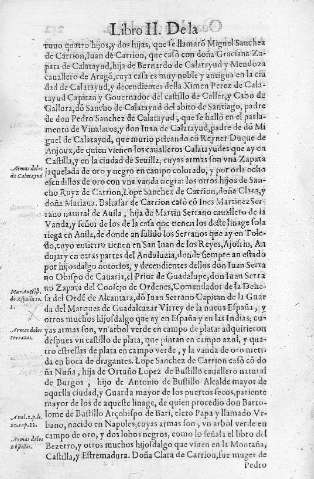 Libro II. De la
tuuo quatro hijos, y dos hijas, que se llamarõ Miguel Sanchez
de Carrion, Iuan de Carrion, que casò con doña Graciana Za-
pata de Calatayud, hija de Bernardo de Calatayud y Mendoza
cauallero de Aragõ, cuya casa es muy noble y antigua en la ciu
dad de Calatayud, y decendientes della Ximen Perez de Cala-
tayud Capitan y Gouernador del castillo de Caller, y Cabo de
Gallora, dõ Sancho de Calatayud del abito de Santiago, padre
de don Pedro Sanchez de Calatayud, que se hallò en el parla-
mento de Vinalaros, y don Iuan de Calatayud, padre de dõ Mi
guel de Calatayud, que murio peleando cõ Reyner Duque de
Anjous, de quien vienen los caualleros Calatayudes que ay en
Armas delos
de Calatayud
Castilla, y en la ciudad de Seuilla, cuyas armas son vna Zapata
jaquelada de oro y negro en campo colorado, y por orla ocho
escudillos de oro con vna vanda negra: los otros hijos de San-
cho Ruyz de Carrion, Lope Sanchez de Carrion, doña Clara, y
doña Mariana. Baltasar de Carrion casò cõ Ines Martinez Ser-
rano natural de Auila, hija de Martin Serrano cauallero de la
Vanda, y señor de los de la casa que tienen los deste linage solar
riega en Auila, de donde an salido los Serranos que ay en Tole-
do, cuyo entierro tienen en San Iuan de los Reyes, Ajofrin, An
dujar y en otras partes del Andaluzia, donde siempre an estado
por hijosdalgo notorios, y decendientes dellos don Iuan Serra
no Obispo de Canaria, el Prior de Guadalupe, don Iuan Serra
no Zapata del Consejo de Ordenes, Comendador de la Dehe-
sa del Ordẽ de Alcantara, dõ Iuan Serrano Capitan de la Gua
da del Marques de Guadalcazar Virrey de la nueua España, y
otros muchos hijosdalgo que ay en España y en las Indias; cu-
Armas delos
Serranos.
yas armas son, vn arbol verde en campo de plata: adquirieron
despues vn castillo de plata, que pintan en campo azul, y qua-
tro estrellas de plata en campo verde, y la vanda de oro meti-
da en boca de dragantes. Lope Sanchez de Carrion casò cõ do
ña Nuña, hija de Ortuño Lopez de Bustillo cauallero natural
de Burgos, hijo de Antonio de Bustillo Alcalde mayor de
aquella ciudad, y Guarda mayor de los puertos secos, pariente
mayor de los de aquelle linage, de quien procedio don Barto-
lome de Bustillo Arçobispo de Bari, eleto Papa y llamado Vr-
bano, nacido en Napoles, cuyas armas son, vn arbol verde en
Armas delos
campo de oro, y dos lobos negros, como lo señala el libro del
Bezerro, y otros muchos hijosdalgo que viuen en la Montaña,
Castilla, y Estremadura. Doña Clara de Carrion, fue muger de
Pedro